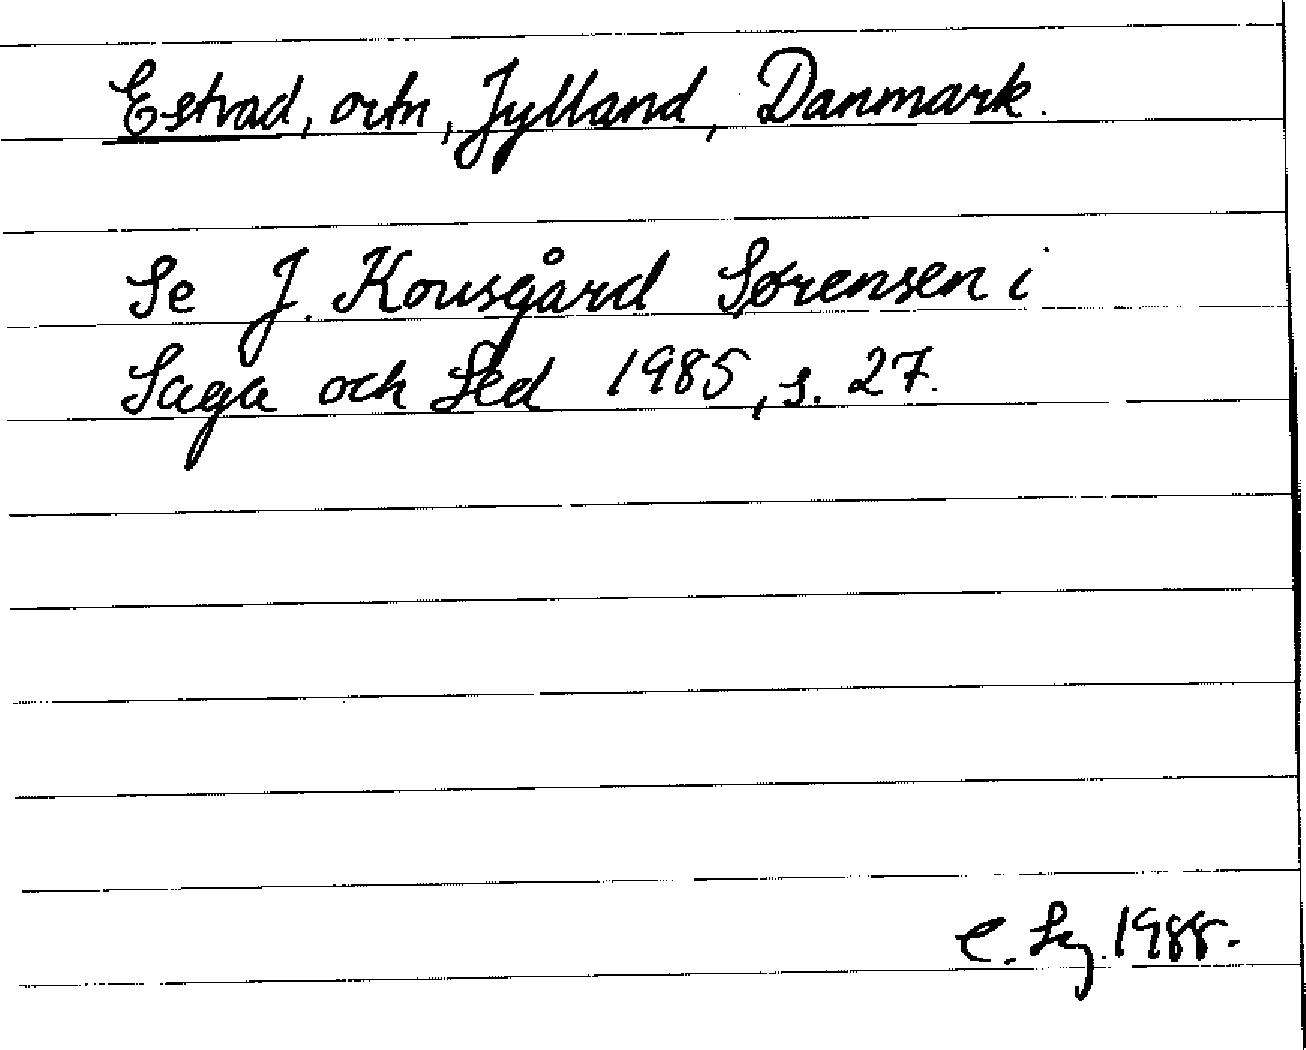 Estvad, ortn, Jylland, Danmark.
Se J. Kousgård Sørensen i
Saga och Sed 1985, s. 27.
1988.